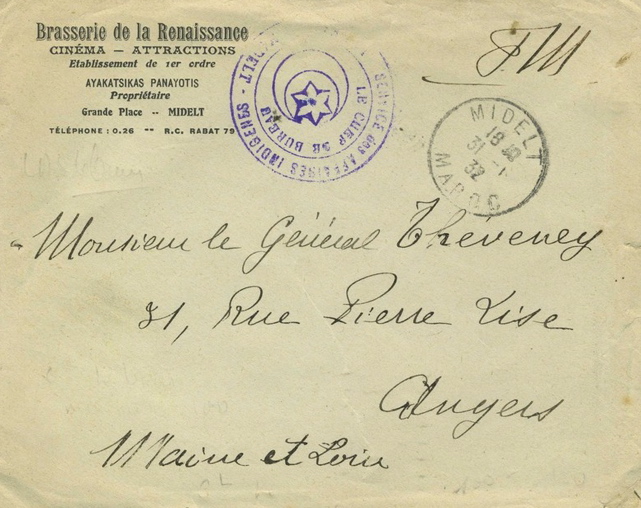 Brasserie de la Renaissance
CINÉMA — ATTRACTIONS
Etablissement de 1er ordre
AYAKATSIKAS PANAYOTIS
Propriétaire
Grande Place -- MIDELT
TÉLÉPHONE : 0.26 -- R.C. RABAT 79
SERVICE DES AFFAIRES INDIGENES - MIDELT -
LE CHEF DE BUREAU
F.M
MIDELT
18
31 -1
32
MAROC
Monsieur le Général Theveney
31, Rue Pierre Lise
Angers
Maine et Loire